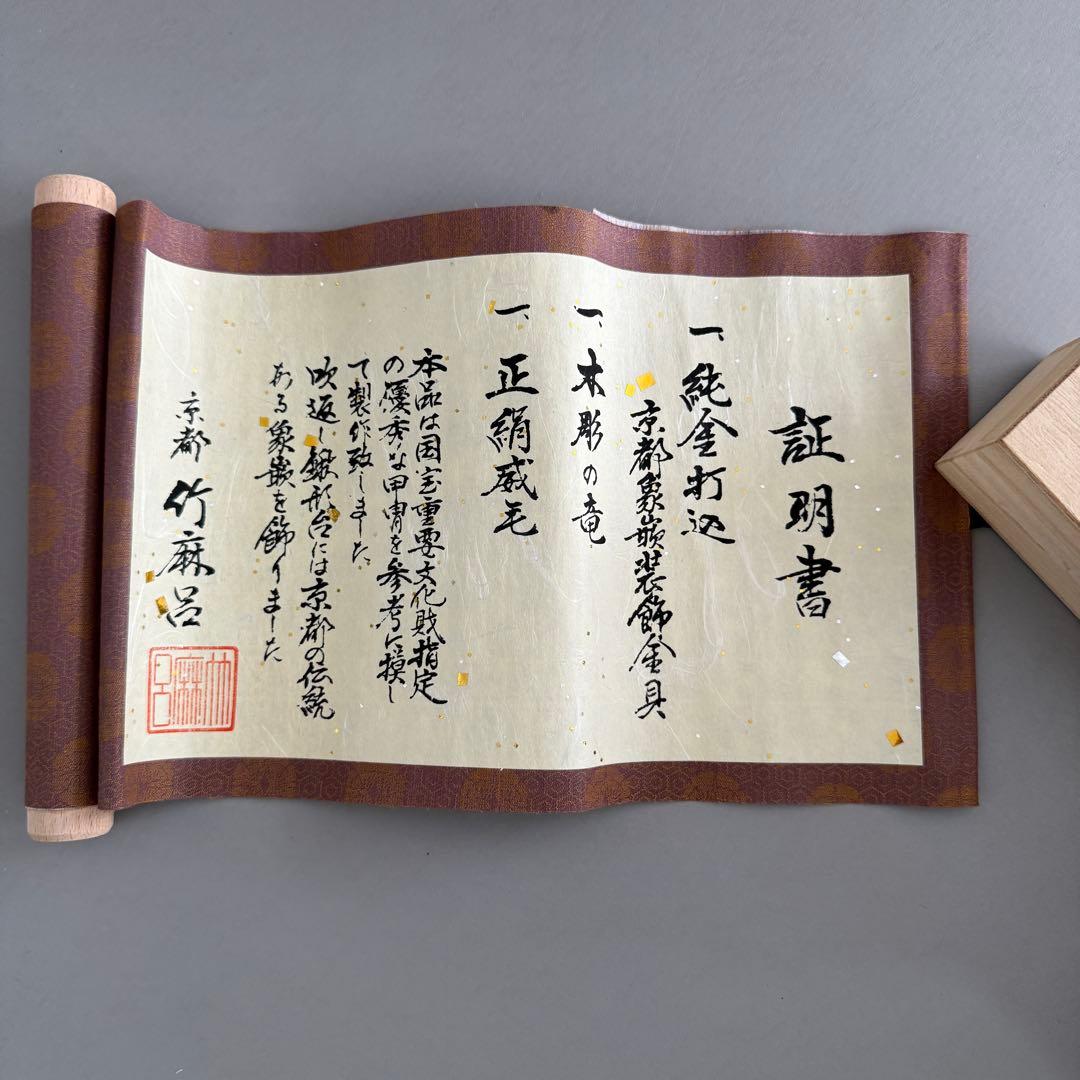 証明書
一、純金打込
京都象嵌装飾金具
一、木彫の竜
一、正絹威毛
本品は国宝重要文化財指定
の優秀な甲冑を参考に摸し
て製作致しました
吹返し鍬形台には京都の伝統
ある象嵌を飾りました
京都 竹麻呂
竹麻呂